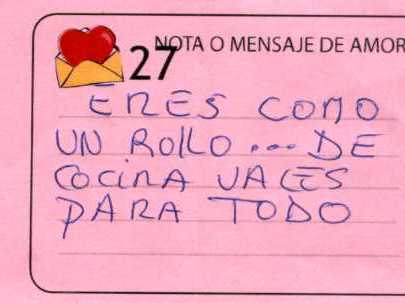 27 NOTA O MENSAJE DE AMOR
ERES COMO
UN ROLLO... DE
COCINA VALES
PARA TODO